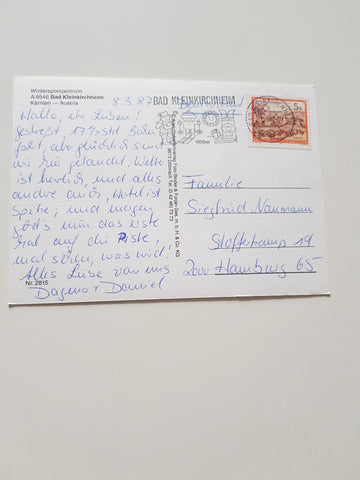 Wintersportzentrum
A-9546 Bad Kleinkirchheim
Kärnten – Austria
8.3.87
BAD KLEINKIRCHHEIM
1100m
Hallo, ihr Lieben!
gestreßt 17½ Std. Bahn-
fahrt, aber glücklich sind
wir hier gelandet. Wetter
ist herrlich, und alles
andre auch, Hotel ist
Spitze, und morgen
geht's nun das erste
Mal auf die Piste,
mal sehen, was wird.
Alles Liebe von uns
Dagmar + Daniel
Nr. 2815
5 S
Familie
Siegfried Naumann
2000 Hamburg 65